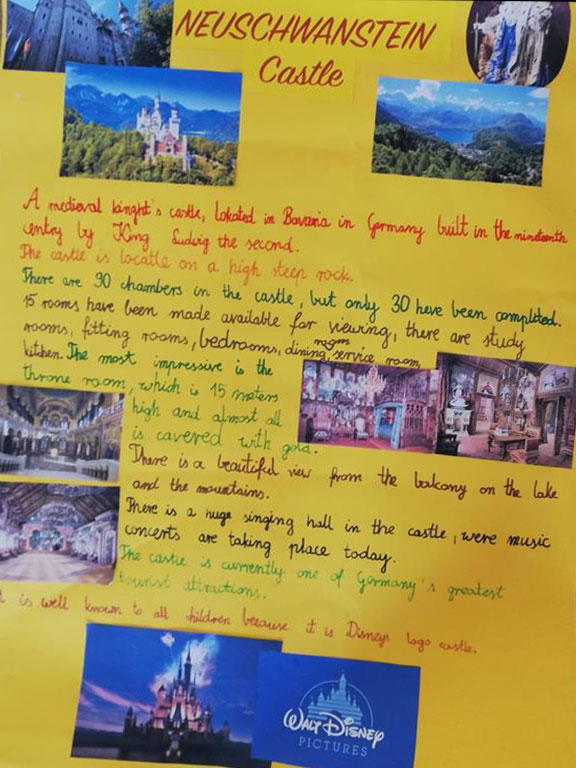 NEUSCHWANSTEIN
Castle
A medieval kinght's castle, Lokated in Bavaria in Germany built in the nineteenth
centry by King Ludwig the second.
The castle is locatle on a high steep rock.
There are 90 chambers in the castle, but only 30 heve been completed.
15 rooms have been made available for viewing, there are study
rooms, fitting rooms, bedrooms, dining room, service room,
kitchen. The most impressive is the
throne room, which is 15 meters
high and almost all
is cavered with gold.
There is a beautiful view from the balcony on the lake
and the mountains.
There is a huge singing hall in the castle, were music
concerts are taking place today.
The castle is currently one of Germany's greatest
tourist attractions.
t is well known to all children because it is Disneys logo castle.
WALT DISNEY
PICTURES